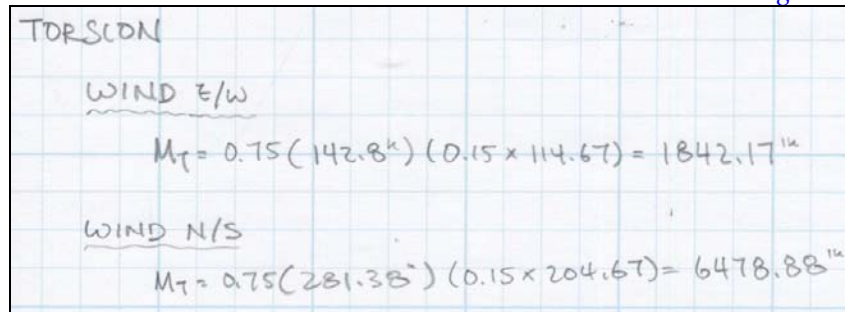 TORSION
WIND E/W
M_T = 0.75 (142.8ᵏ) (0.15 x 114.67) = 1842.17'ᵏ
WIND N/S
M_T = 0.75 (281.38ᵏ) (0.15 x 204.67) = 6478.88'ᵏ